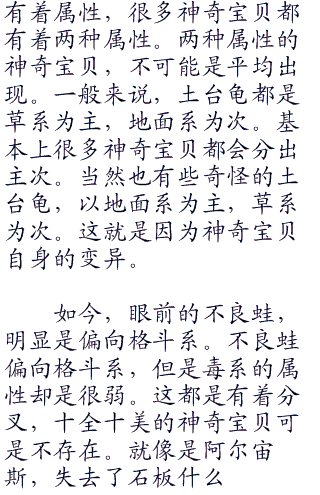 有着属性，很多神奇宝贝都
有着两种属性。两种属性的
神奇宝贝，不可能是平均出
现。一般来说，土台龟都是
草系为主，地面系为次。基
本上很多神奇宝贝都会分出
主次。当然也有些奇怪的土
台龟，以地面系为主，草系
为次。这就是因为神奇宝贝
自身的变异。
如今，眼前的不良蛙，
明显是偏向格斗系。不良蛙
偏向格斗系，但是毒系的属
性却是很弱。这都是有着分
叉，十全十美的神奇宝贝可
是不存在。就像是阿尔宙
斯，失去了石板什么